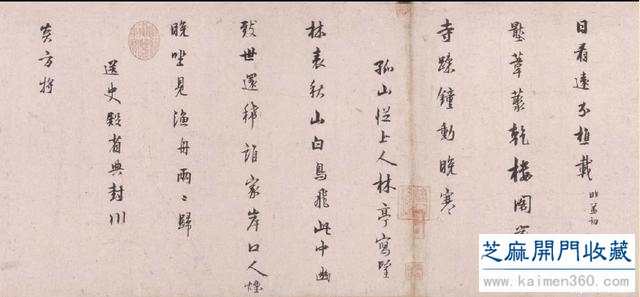 日看遠分樵載
壓葦叢乾樓閣
寺疎鐘動晚寒
孤山從上人林亭寫望
林表秋山白鳥飛此中幽
致世還稀誰家岸口人煙
晚坐見漁舟兩〻歸
送史殿省典封川
炎方將
芝麻開門收藏
www.kaimen360.com